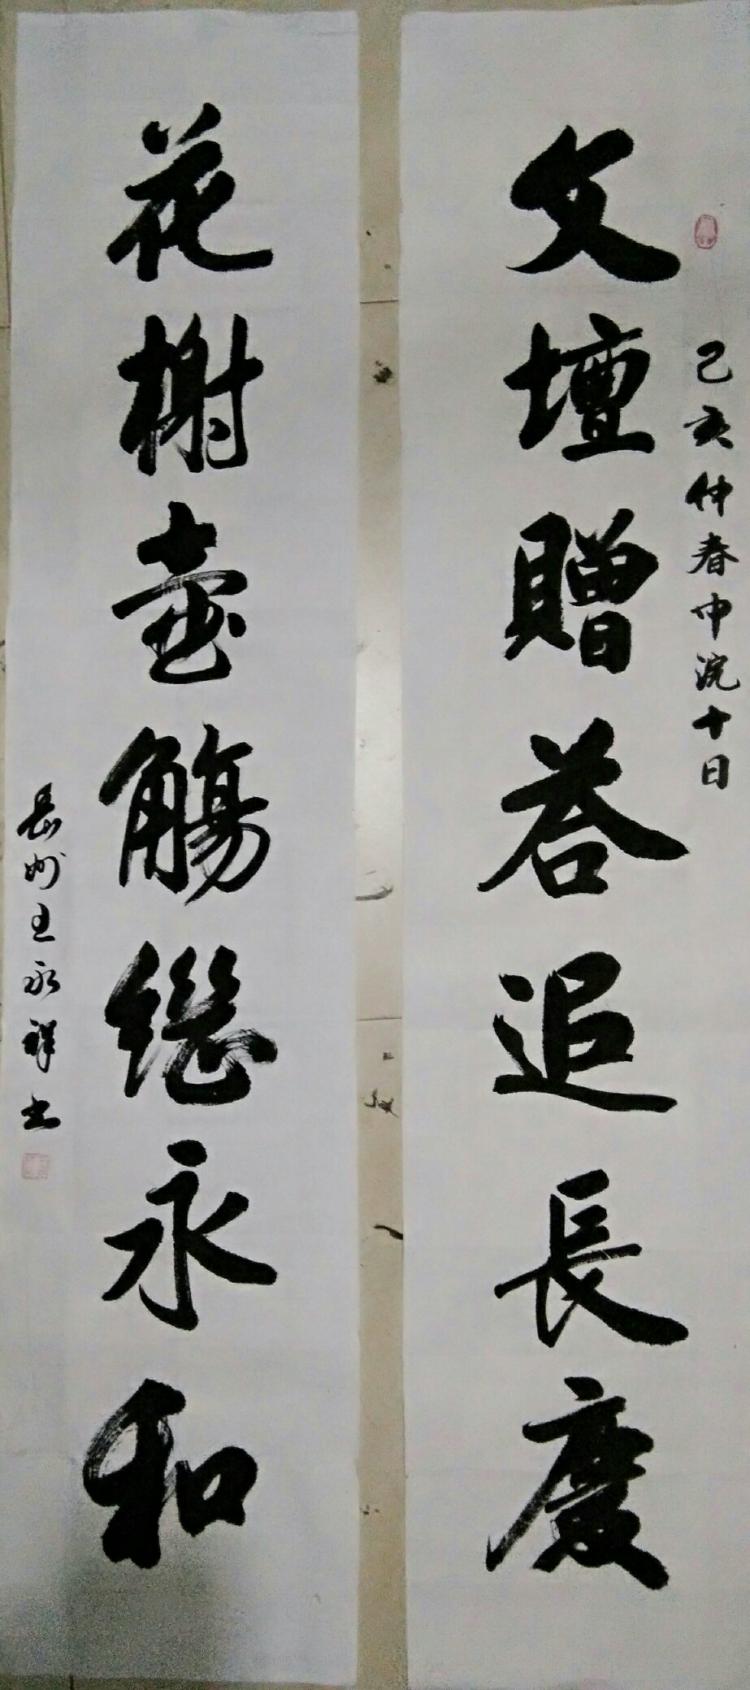 文壇贈答追長慶
己亥仲春中浣十日
花榭壺觴繼永和
岳州王永祥书